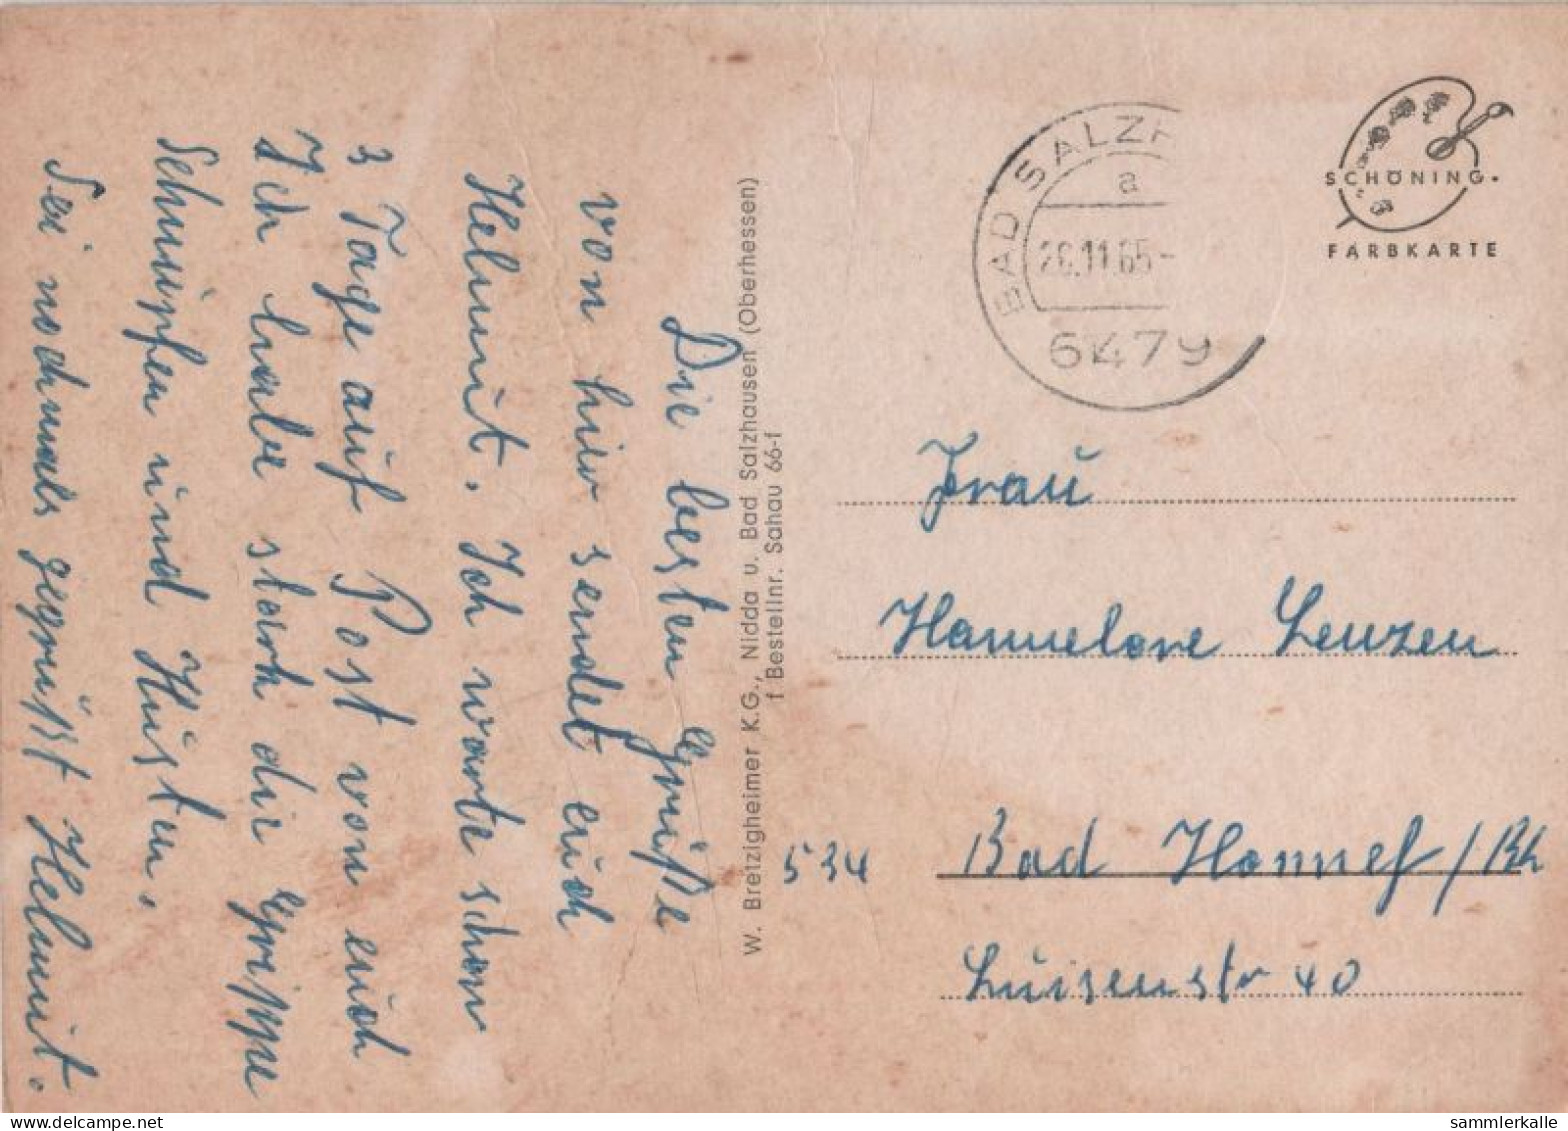 Die besten Grüße
von hier sendet euch
Helmut. Ich warte schon
3 Tage auf Post von euch
Ich habe stark die Grippe
Schnüpfen und Hüsten.
Sei nochmals gegrüßt Helmut.
W. Bretzigheimer K.G., Nidda u. Bad Salzhausen (Oberhessen)
f Bestellnr. Sahau 66-f
BAD SALZH
a
26.11.65-
6479
SCHÖNING.
FARBKARTE
Frau
Hannelore Lenzen
534 Bad Honnef/Rh
Luisenstr 40
www.delcampe.net
sammlerkalle